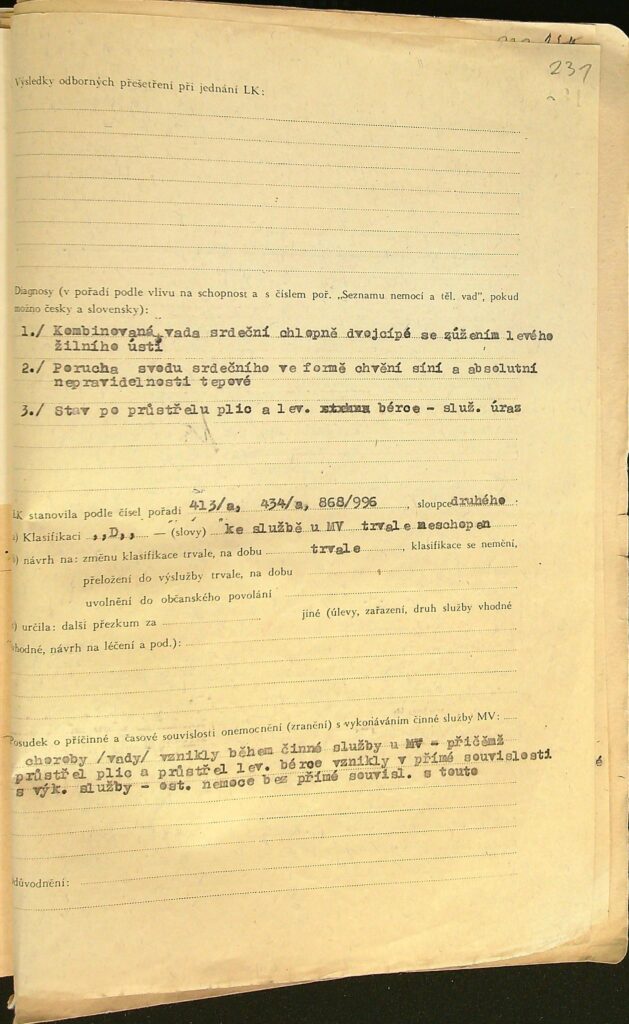 231
Výsledky odborných přešetření při jednání LK:
Diagnosy (v pořadí podle vlivu na schopnost a s číslem poř. „Seznamu nemocí a těl. vad", pokud
možno česky a slovensky):
1./ Kombinovaná vada srdeční chlopně dvojcípé se zúžením levého
žilního ústí
2./ Porucha svodu srdečního ve formě chvění síní a absolutní
nepravidelnosti tepové
3./ Stav po průstřelu plic a lev. bérce - služ. úraz
LK stanovila podle čísel pořadí 413/a, 434/a, 868/996, sloupce druhého :
a) Klasifikaci ,,D,, — (slovy) ke službě u MV trvale neschopen
b) návrh na: změnu klasifikace trvale, na dobu trvale, klasifikace se nemění,
přeložení do výslužby trvale, na dobu
uvolnění do občanského povolání
c) určila: další přezkum za jiné (úlevy, zařazení, druh služby vhodné
vhodné, návrh na léčení a pod.):
Posudek o příčinné a časové souvislosti onemocnění (zranění) s vykonáváním činné služby MV:
choroby /vady/ vznikly během činné služby u MV - přičemž
průstřel plic a průstřel lev. bérce vznikly v přímé souvislosti
s výk. služby - ost. nemoce bez přímé souvisl. s touto
důvodnění: